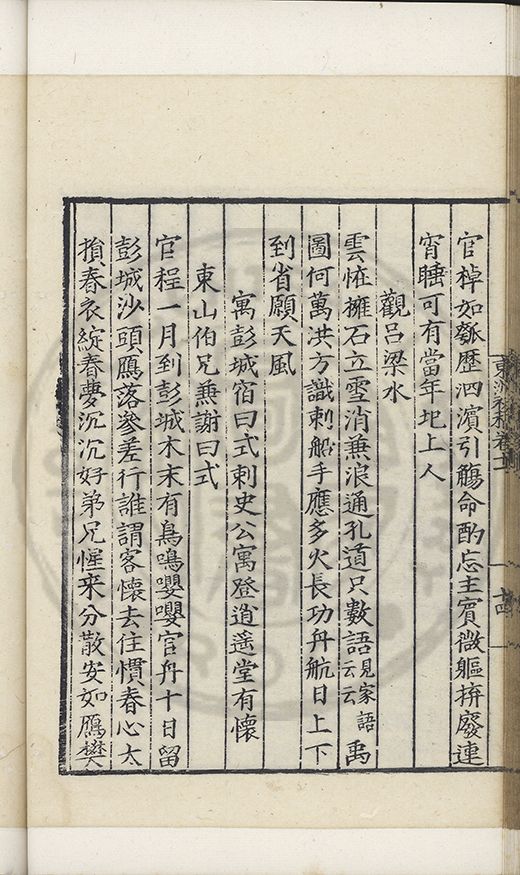 官棹如瓠歷泗濱引觴命酌忘主賓微軀拚廢連
宵𥈭可有當年圯上人
觀呂梁水
雲㤪擁石立雪消兼浪通孔道只數語見家語云云禹
圖何萬洪方識刺船手應多火長功舟航日上下
到省願天風
寓彭城宿曰式刺史公寓登逍遥堂有懷
東山伯兄兼謝曰式
官程一月到彭城木末有鳥鳴嚶嚶官舟十日留
彭城沙頭鴈落參差行誰謂客懷去住慣春心太
損春衣綻春夢沉沉好弟兄惺来分散安如鴈樊